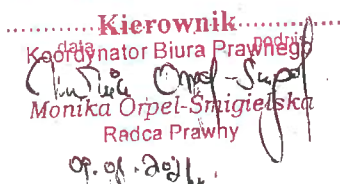 Kierownik
data podpis
Koordynator Biura Prawnego
Monika Orpel-Śmigielska
Radca Prawny